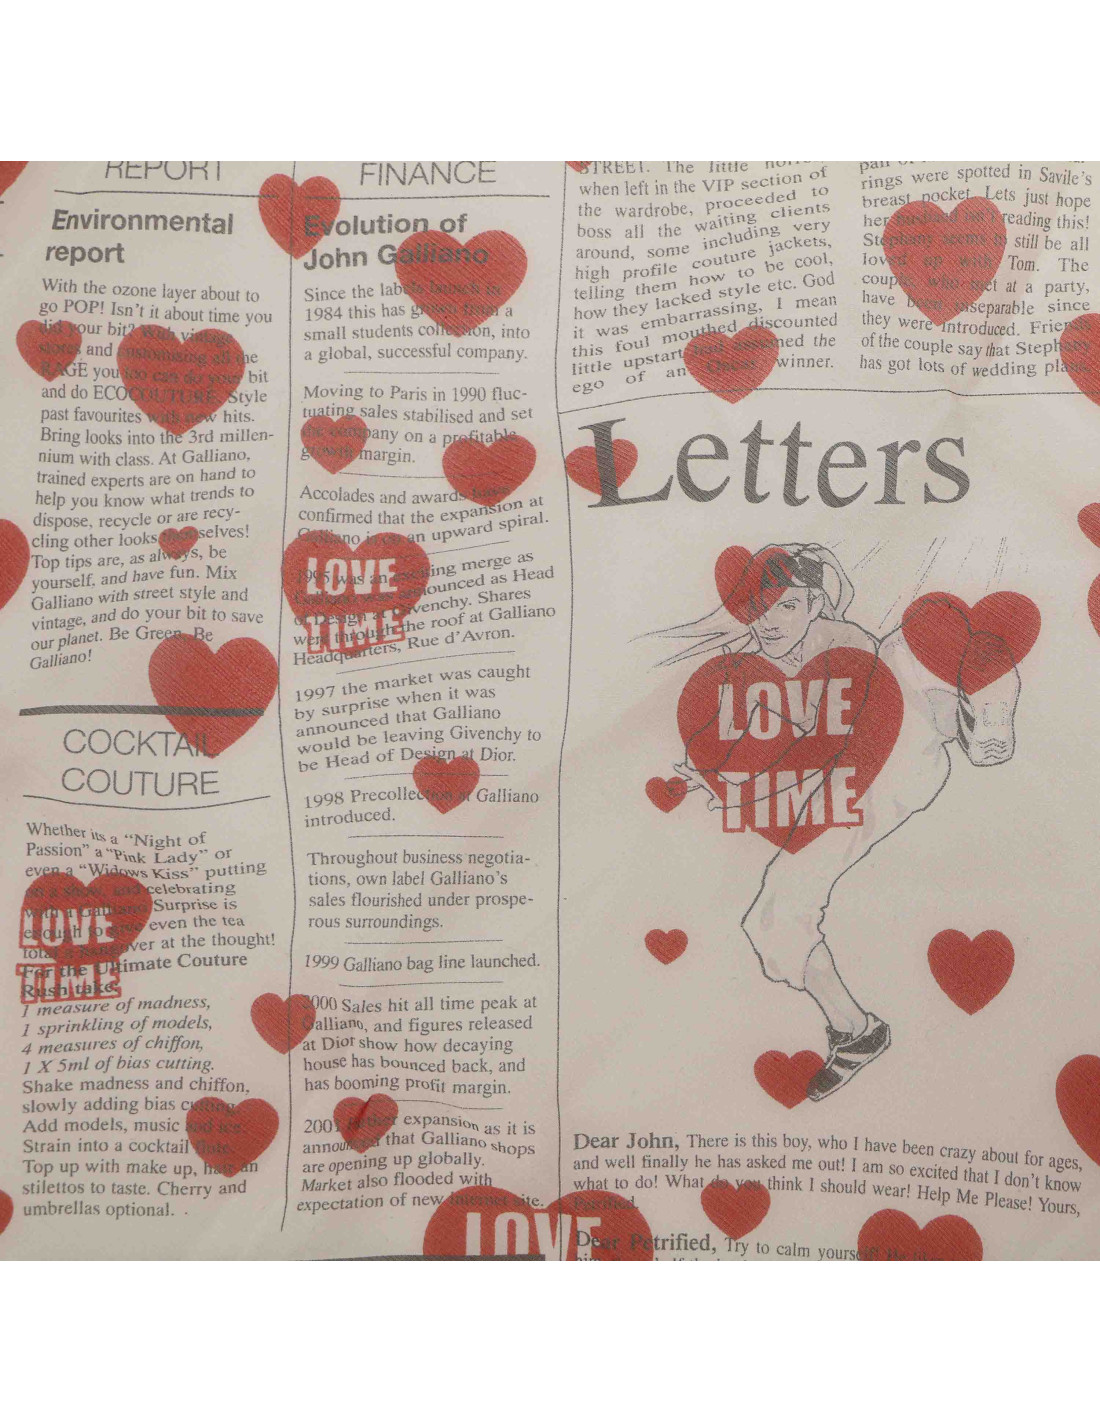 REPORT
Environmental
report
With the ozone layer about to
go POP! Isn't it about time you
did your bit? With vintage
stores and customizing all the
RAGE you too can do your bit
and do ECOCOUTURE. Style
past favourites with new hits.
Bring looks into the 3rd millen-
nium with class. At Galliano,
trained experts are on hand to
help you know what trends to
dispose, recycle or are recy-
cling other looks themselves!
Top tips are, as always, be
yourself, and have fun. Mix
Galliano with street style and
vintage, and do your bit to save
our planet. Be Green, Be
Galliano!
COCKTAIL
COUTURE
Whether its a “Night of
Passion” a “Pink Lady” or
even a “Widows Kiss” putting
on a show, and celebrating
with a Galliano Surprise is
enough to give even the tea
total a hangover at the thought!
For the Ultimate Couture
Rush take
LOVE
TIME
1 measure of madness,
1 sprinkling of models,
4 measures of chiffon,
1 X 5ml of bias cutting.
Shake madness and chiffon,
slowly adding bias cutting.
Add models, music and
Strain into a cocktail flute.
Top up with make up, hair an
stilettos to taste. Cherry and
umbrellas optional. .
FINANCE
Evolution of
John Galliano
Since the labels launch in
1984 this has grown from a
small students collection, into
a global, successful company.
Moving to Paris in 1990 fluc-
tuating sales stabilised and set
the company on a profitable
growth margin.
Accolades and awards have
confirmed that the expansion at
Galliano is on an upward spiral.
1995 was an exciting merge as
Galliano was announced as Head
of Design at Givenchy. Shares
went through the roof at Galliano
Headquarters, Rue d’Avron.
LOVE
TIME
1997 the market was caught
by surprise when it was
announced that Galliano
would be leaving Givenchy to
be Head of Design at Dior.
1998 Precollection at Galliano
introduced.
Throughout business negotia-
tions, own label Galliano’s
sales flourished under prospe-
rous surroundings.
1999 Galliano bag line launched.
2000 Sales hit all time peak at
Galliano, and figures released
at Dior show how decaying
house has bounced back, and
has booming profit margin.
2001 expansion as it is
announced that Galliano shops
are opening up globally.
Market also flooded with
expectation of new internet site.
LOVE
STREET. The little
when left in the VIP section of
the wardrobe, proceeded to
boss all the waiting clients
around, some including very
high profile couture jackets,
telling them how to be cool,
how they lacked style etc. God
it was embarrassing, I mean
this foul mouthed discounted
little upstart had assumed the
ego of an Oscar winner.
rings were spotted in Savile’s
breast pocket. Lets just hope
her husband isn't reading this!
Stephany seems to still be all
loved up with Tom. The
couple, who met at a party,
have been inseparable since
they were introduced. Friends
of the couple say that Stephany
has got lots of wedding plans.
Letters
LOVE
TIME
Dear John, There is this boy, who I have been crazy about for ages,
and well finally he has asked me out! I am so excited that I don’t know
what to do! What do you think I should wear! Help Me Please! Yours,
Petrified.
Dear Petrified, Try to calm yourself!